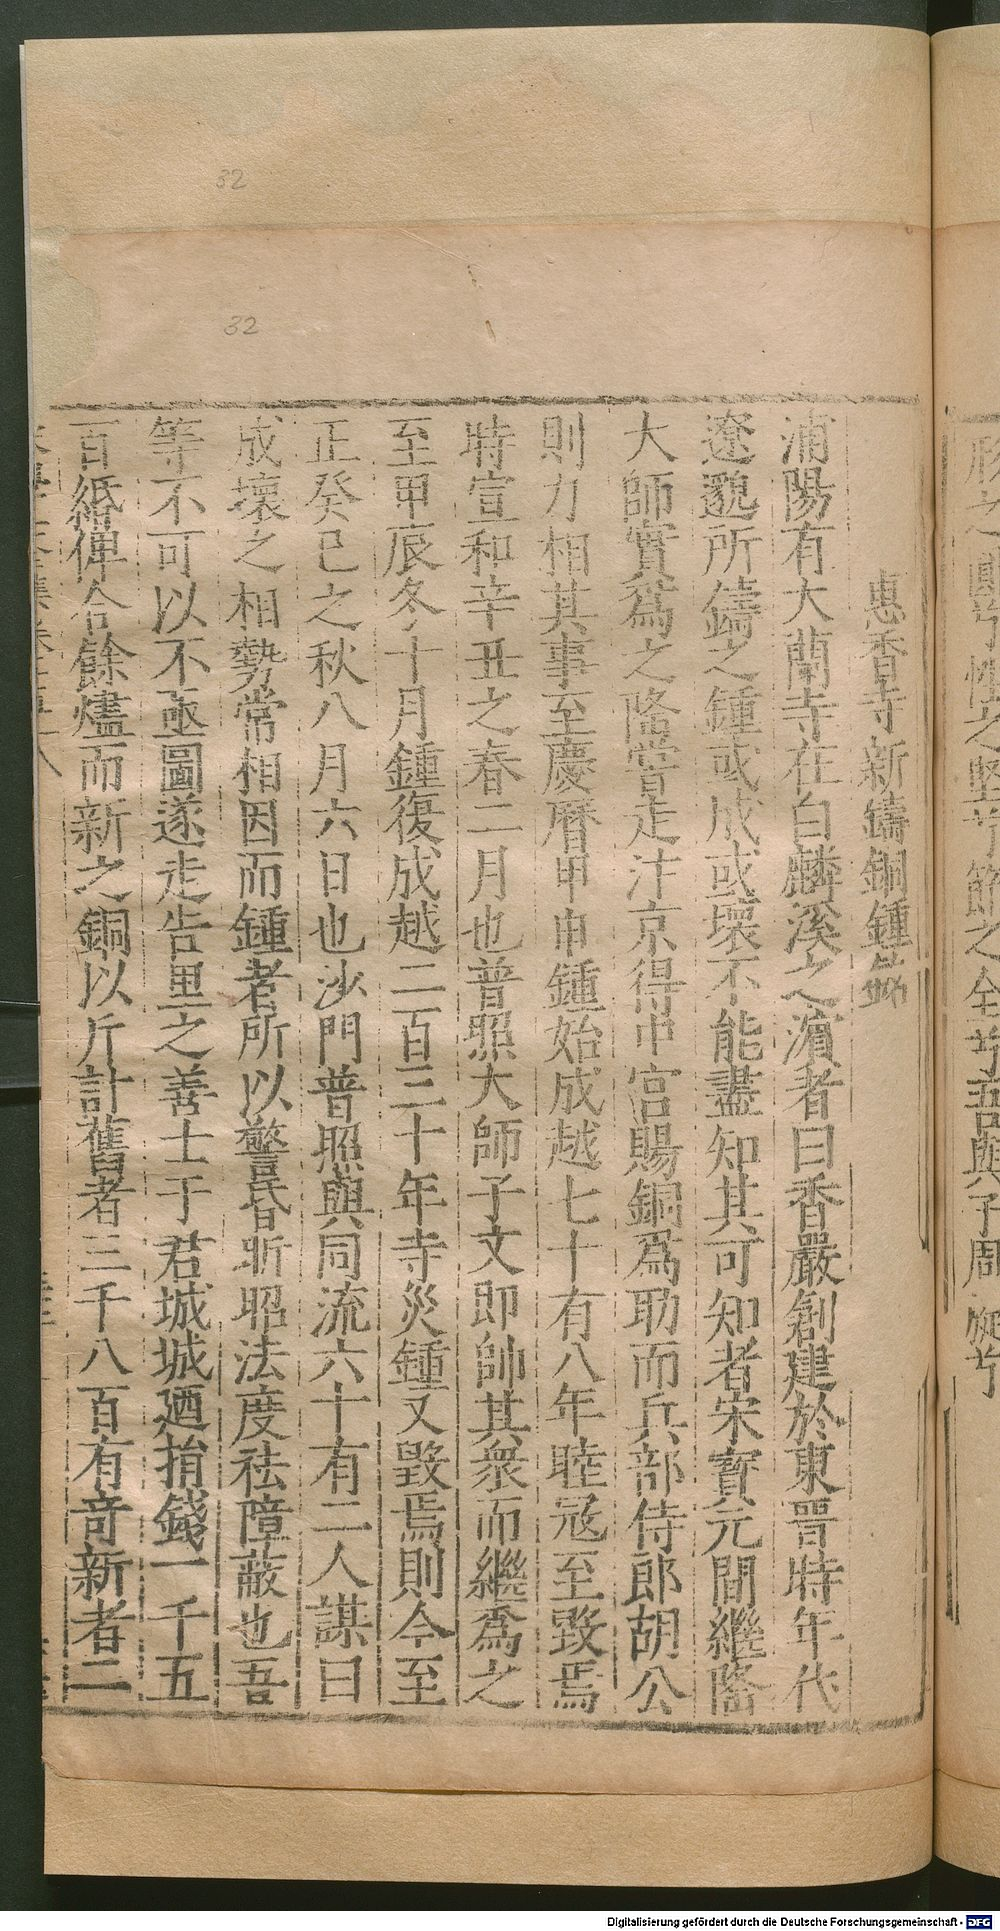 惠香寺新鑄銅鍾銘
浦陽有大蘭寺在白麟溪之濱者曰香嚴創建於東晉時年代
遼邈所鑄之鍾或成或壞不能盡知其可知者宋寶元間繼隆
大師實爲之隆嘗走汴京得中宮賜銅爲助而兵部侍郎胡公
則力相其事至慶曆甲申鍾始成越七十有八年睦寇至毀焉
時宣和辛丑之春二月也普照大師子文即帥其衆而繼爲之
至甲辰冬十月鍾復成越二百三十年寺災鍾又毀焉則今至
正癸巳之秋八月六日也沙門普照與同流六十有二人謀曰
成壞之相勢常相因而鍾者所以警昏昕昭法度祛障蔽也吾
等不可以不亟圖遂走告里之善士于君城城廼捐錢一千五
百緡俾合餘燼而新之銅以斤計舊者三千八百有奇新者二
32
32
Digitalisierung gefördert durch die Deutsche Forschungsgemeinschaft - DFG